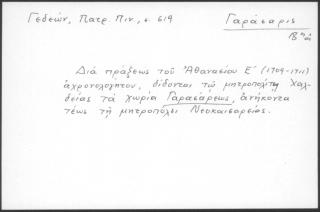 Γεδεών, Πατρ. Πιν., σ. 619
Γαράσαρις
Διὰ πράξεως τοῦ Ἀθανασίου Ε΄ (1709-1711)
ἀχρονολογήτου, δίδονται τῷ μητροπολίτῃ Χαλ-
δείας τὰ χωρία Γαρασάρεως, ἀνήκοντα
τέως τῇ μητροπόλει Νεοκαισαρείας.